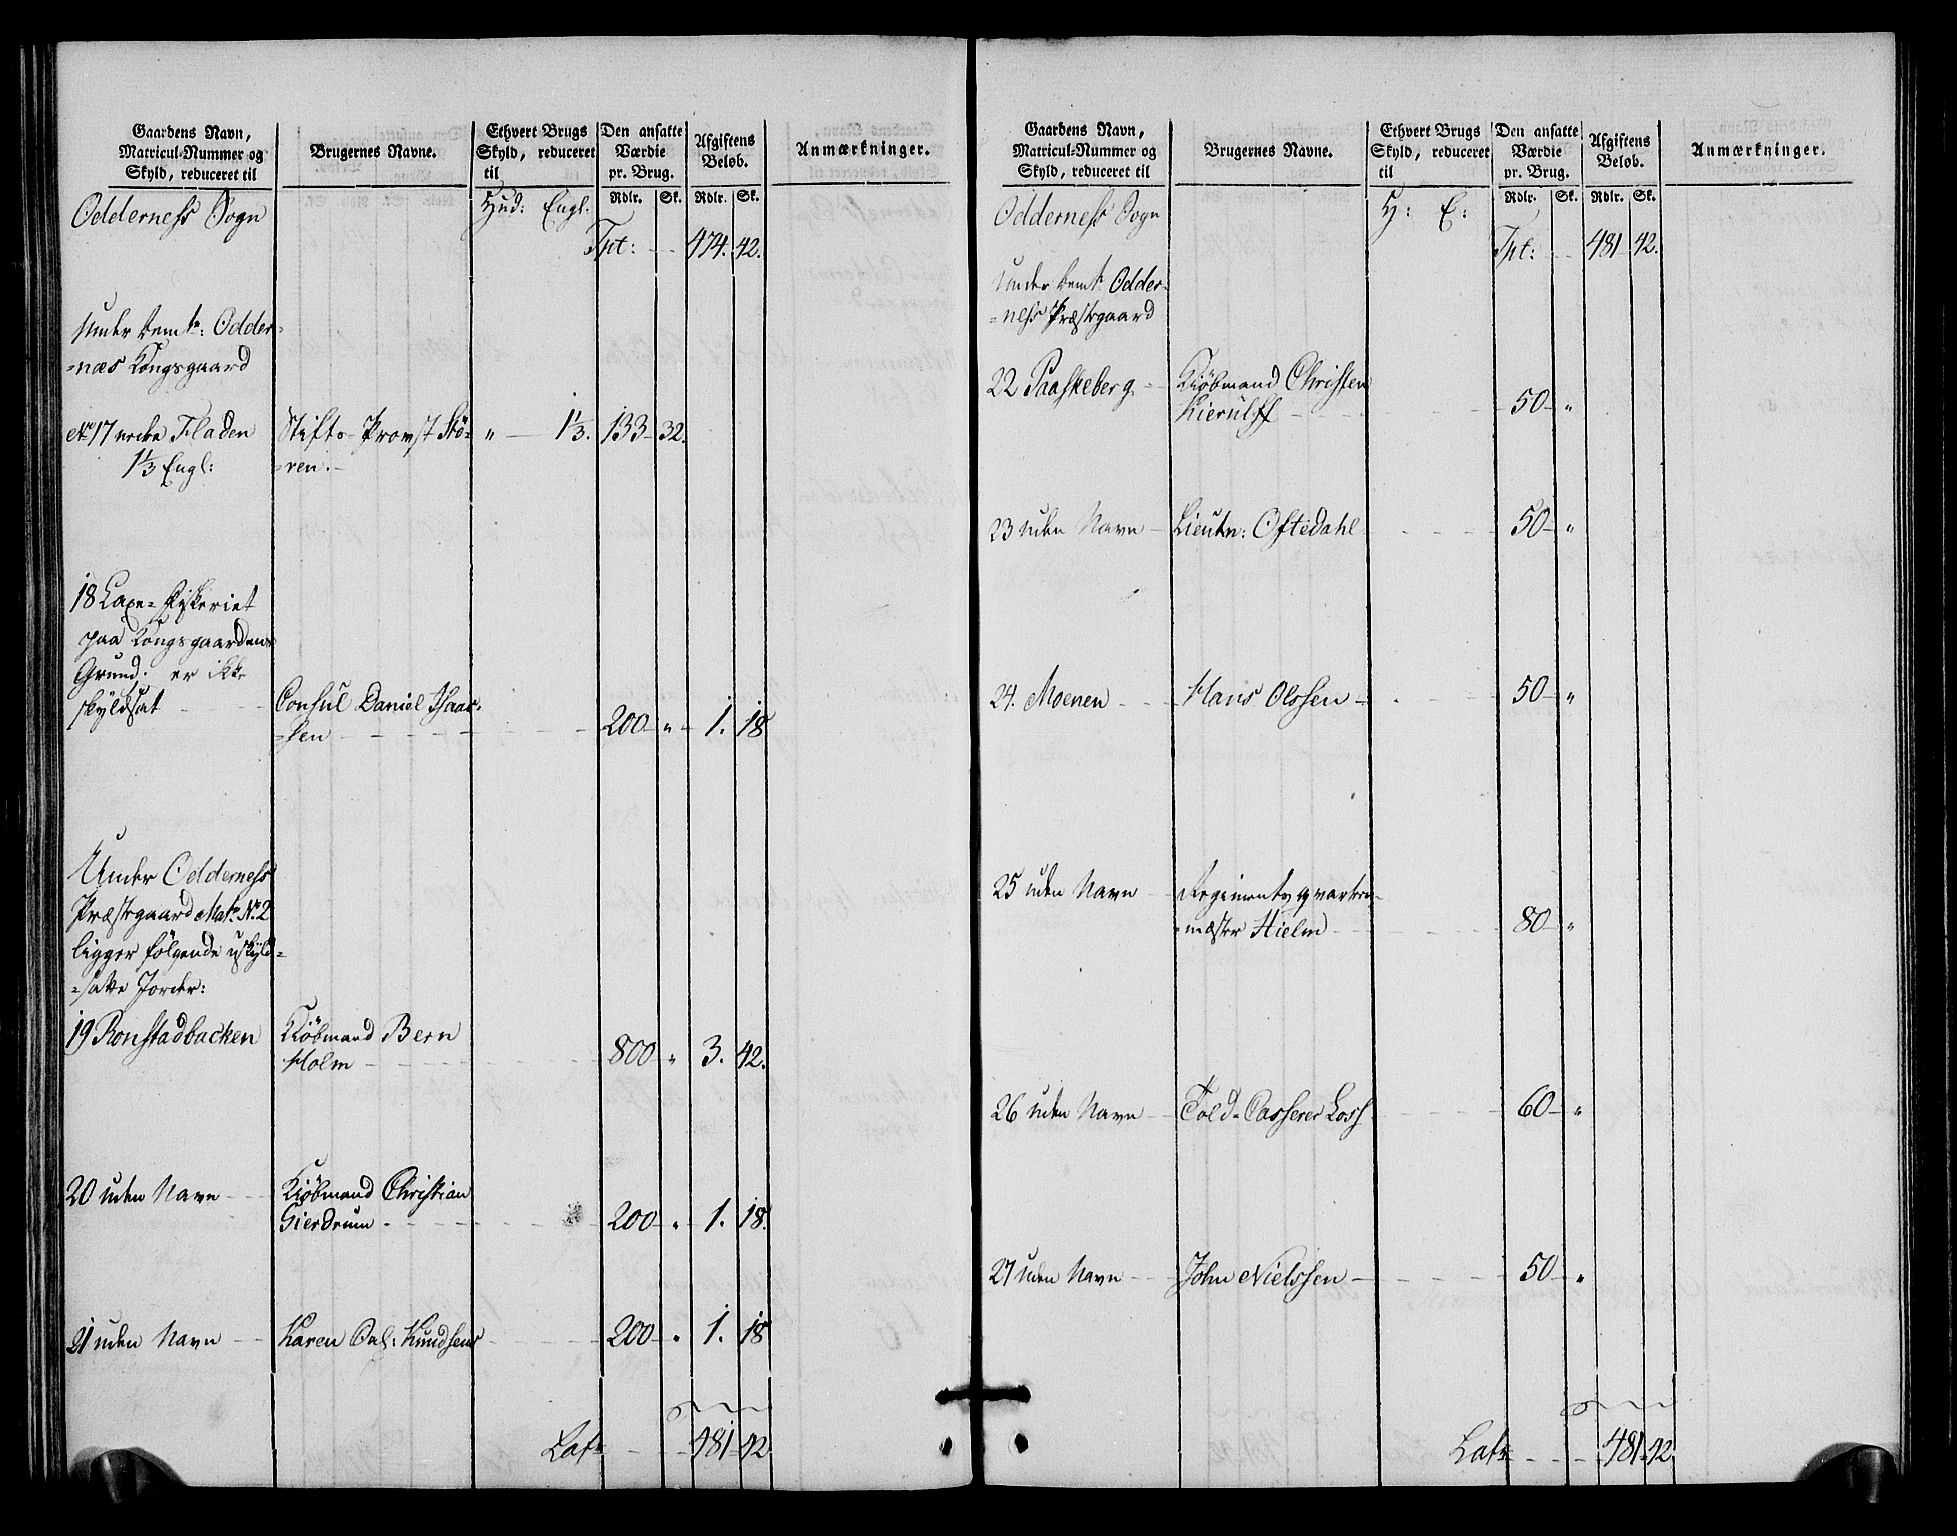 Gaardens Navn,
Matricul-Nummer og
Skyld, reduceret til
Brugernes Navne.
Ethvert Brugs
Skyld, reduceret
til
Den ansatte
Værdie
pr. Brug.
Afgiftens
Beløb.
Anmærkninger.
Rdlr. Sk. Rdlr. Sk.
Oddernefs Sogn Hud: Engl.
Tpt: 474. 42.
Under bemte: Odder-
=næs Kongsgaard
No 17 Fladen Stifts Provst Stö- " 1 1/3. 133 32.
1 1/3 Engl: =ren.
18 Laxe-Fiskeriet
paa Kongsgaardens
Grund. er ikke
skyldsat Consul Daniel Isaac-
=sen 200 " 1. 18
Under Oddernefs
Præstegaard Matr. No. 2
ligger følgende uskyld-
=satte Jorder:
19 Ronstadbacken Kiöbmand Bern
Holm 800 " 3. 42.
20 uden Navn Kiöbmand Christian
Gierdrum 200 " 1. 18.
21 uden Navn Karen Knudsens 200 " 1. 18
Lats 481 42
Gaardens Navn,
Matricul-Nummer og
Skyld, reduceret til
Brugernes Navne.
Ethvert Brugs
Skyld, reduceret
til
Den ansatte
Værdie
pr. Brug.
Afgiftens
Beløb.
Anmærkninger.
Rdlr. Sk. Rdlr. Sk.
Oddernefs Sogn H: E:
Tpt: 481 42.
Under bemte. Odder-
=nefs Præstegaard
22 Paaskeberg Kiöbmand Christen
Kierulff 50 "
23 uden Navn Lieutn: Oftedahl 50 "
24. Moenen Hans Olssen 50 "
25 uden Navn Regimentsqvarteer-
=mæster Hielm 80 "
26 uden Navn Told-Casserer Loss 60 "
27 uden Navn John Nielssen 50 "
Lats 481 42.